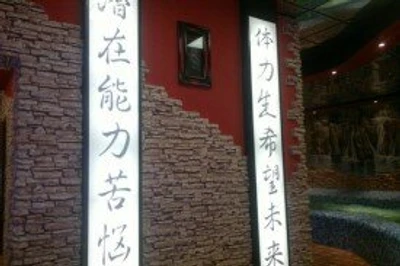 潜在能力苦恼
体力生希望未来